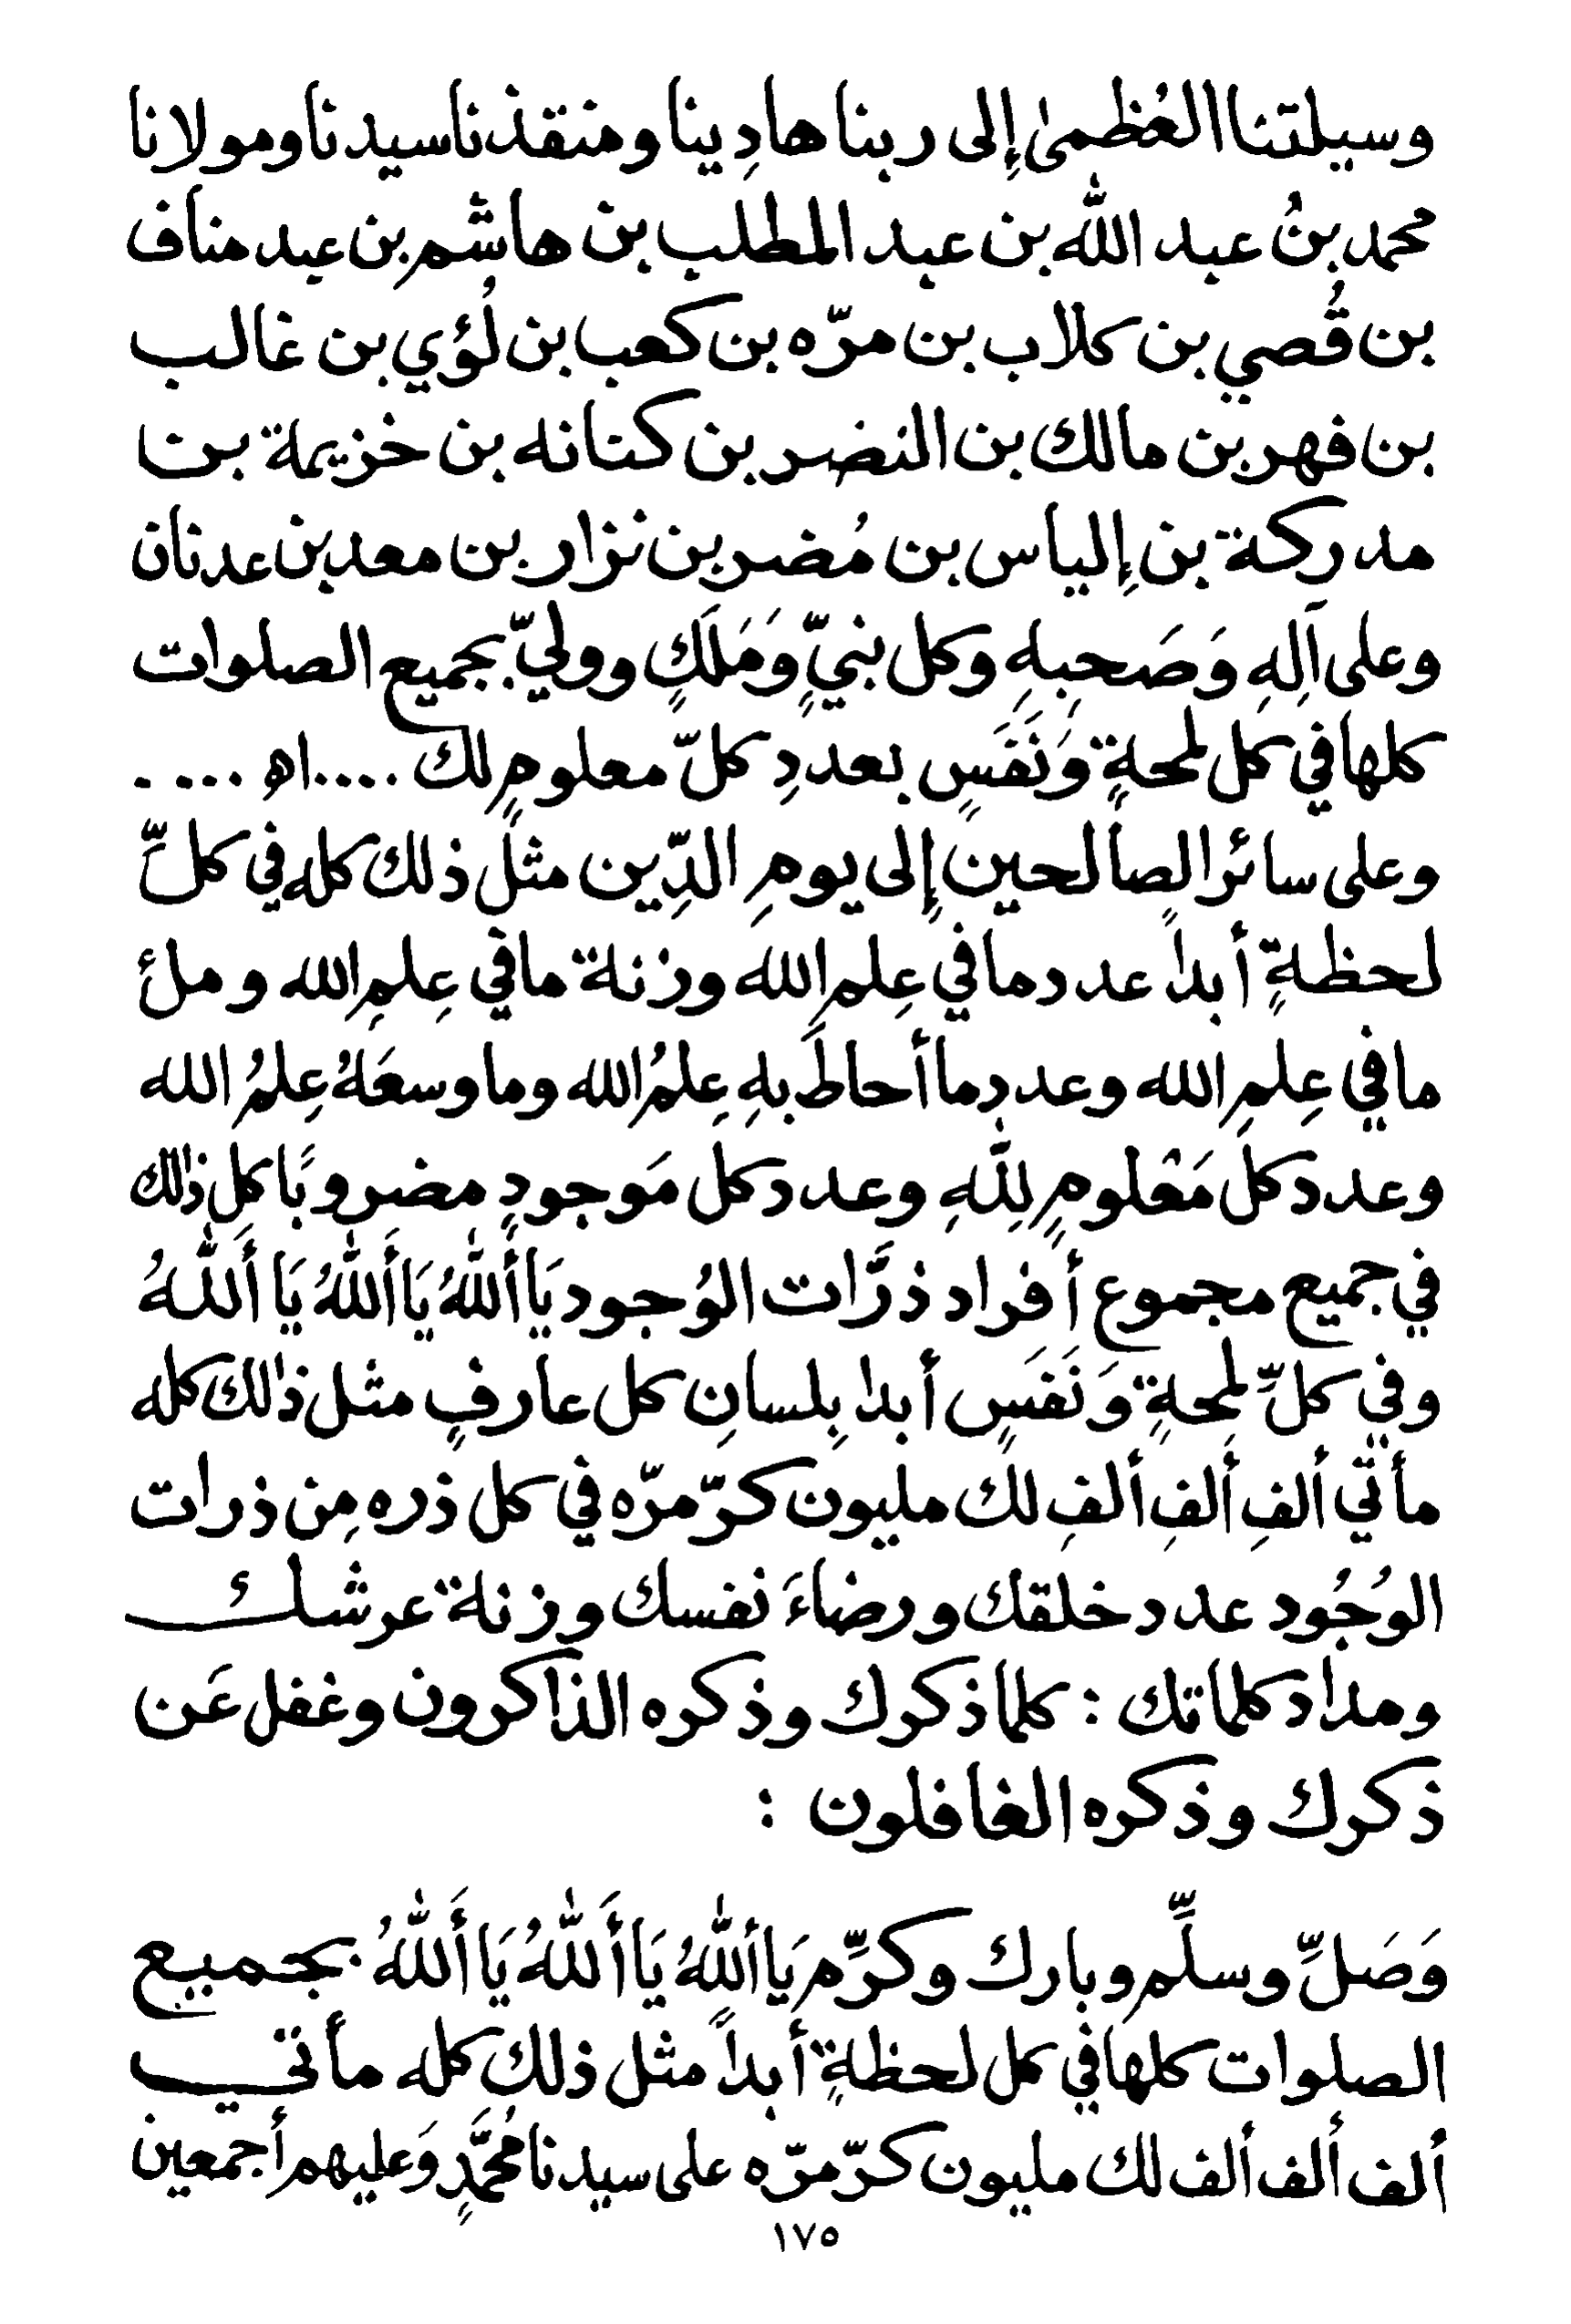 وسيلتنا العُظمىٰ إِلى ربنا هادِينا ومنقذنا سيدنا ومولانا
محمد بنُ عبد اللّٰه بن عبد المطلب بن هاشم بن عبد مناف
بن قُصي بن كلاب بن مرّه بن كعب بن لُؤي بن غالب
بن فهر بن مالك بن النضر بن كنانه بن خزيمة بن
مدركة بن إِلياس بن مُضر بن نزار بن معد بن عدنان
وعلى آلِهِ وَصَحبِهِ وكل نبيٍّ وَمَلَكٍ ووليّ بجميع الصلوات
كلها في كل لمحةٍ وَنَفَسٍ بعددِ كلّ معلومٍ لك ....اه ....
وعلى سائر الصالحين إِلى يومِ الدِّين مثل ذلك كله في كلِّ
لحظةٍ أبداً عدد ما في عِلمِ الله وزنة ما في عِلمِ الله وملئ
ما في عِلمِ الله وعدد ما أحاطَ بهِ عِلمُ الله وما وسعَهُ عِلمُ الله
وعدد كل مَعْلومٍ لِلّهِ وعدد كل مَوجودٍ مضروبًا كل ذٰلك
في جميع مجموع أفراد ذرَّات الوُجود يَا أَللّٰهُ يَا أَللّٰهُ يَا أَللّٰهُ
وفي كلِّ لمحةٍ وَنَفَسٍ أبدا بِلسانِ كل عارفٍ مثل ذٰلك كله
مأتي ألفِ ألفِ ألفِ لك مليون كرّ مرّه في كل ذره مِن ذرات
الوُجُود عدد خلقك ورضاءَ نفسك وزنة عرشك
ومداد كلماتك : كلما ذكرك وذكره الذاكرون وغفل عَن
ذكرك وذكره الغافلون :
وَصَلِّ وسلِّم وبارك وكرِّم يَا أللّٰهُ يَا أَللّٰهُ يَا أَللّٰهُ بجميع
الصلوات كلها في كل لحظةٍ أبداً مثل ذلك كله مأتي
ألف ألف ألف لك مليون كرّ مرّه على سيدنا مُحَمَّدٍ وَعليهم أجمعين
١٧٥